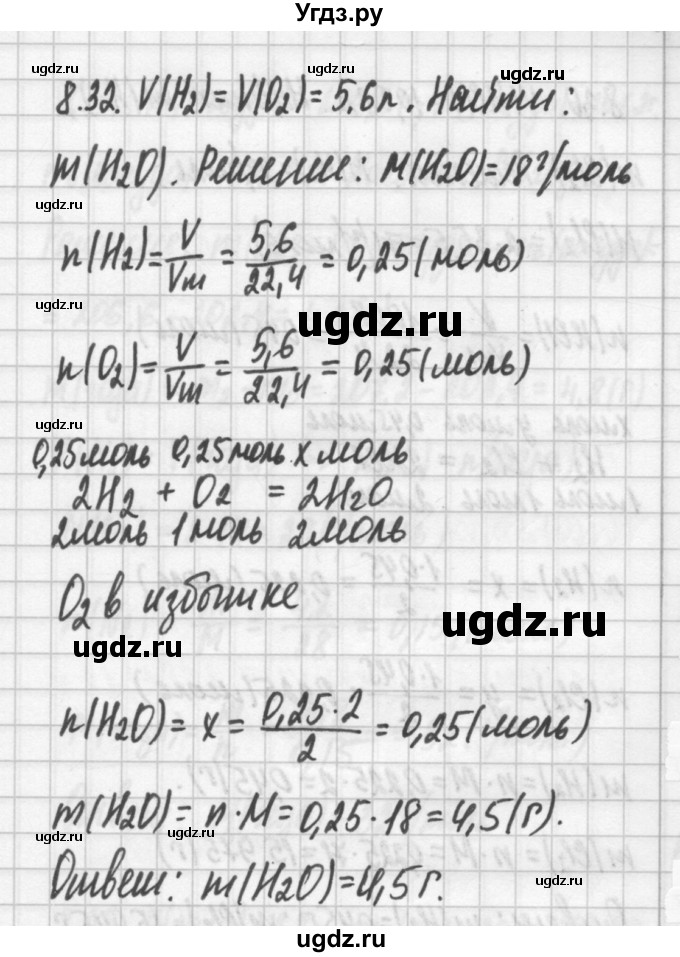 Угдз.ру
ugdz.ru ugdz.ru ugdz.ru
8.32. V(H₂)=V(O₂)=5.6л. Найти:
m(H₂O). Решение: M(H₂O)=18г/моль
ugdz.ru
n(H₂)=V/Vm=5,6/22,4=0,25(моль)
ugdz.ru
ugdz.ru
n(O₂)=V/Vm=5,6/22,4=0,25(моль)
ugdz.ru
0,25моль 0,25моль x моль
2H₂ + O₂ = 2H₂O
2моль 1моль 2моль
O₂ в избытке
ugdz.ru
ugdz.ru
n(H₂O)=x=0,25·2/2=0,25(моль)
m(H₂O)=n·M=0,25·18=4,5(г).
ugdz.ru ugdz.ru
Ответ: m(H₂O)=4,5г.
ugdz.ru
ugdz.ru